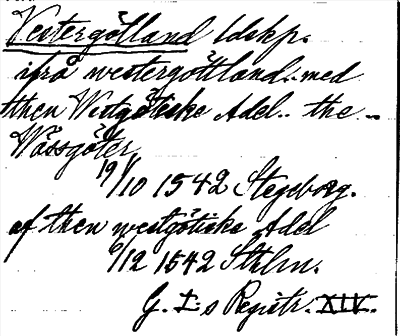 Vestergötland ldskp.
ifrå westergöttland.. med
then Westgötiske Adel.. the ..
Wässgöter
19/10 1542 Stegeborg.
af then westgötiske Adel
6/12 1542 Sthlm.
G. I:s Registr. XIV.